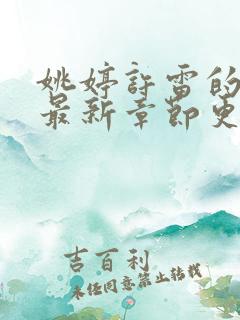 姚婷許雷的
最新章節更
吉百利
未经同意禁止转载